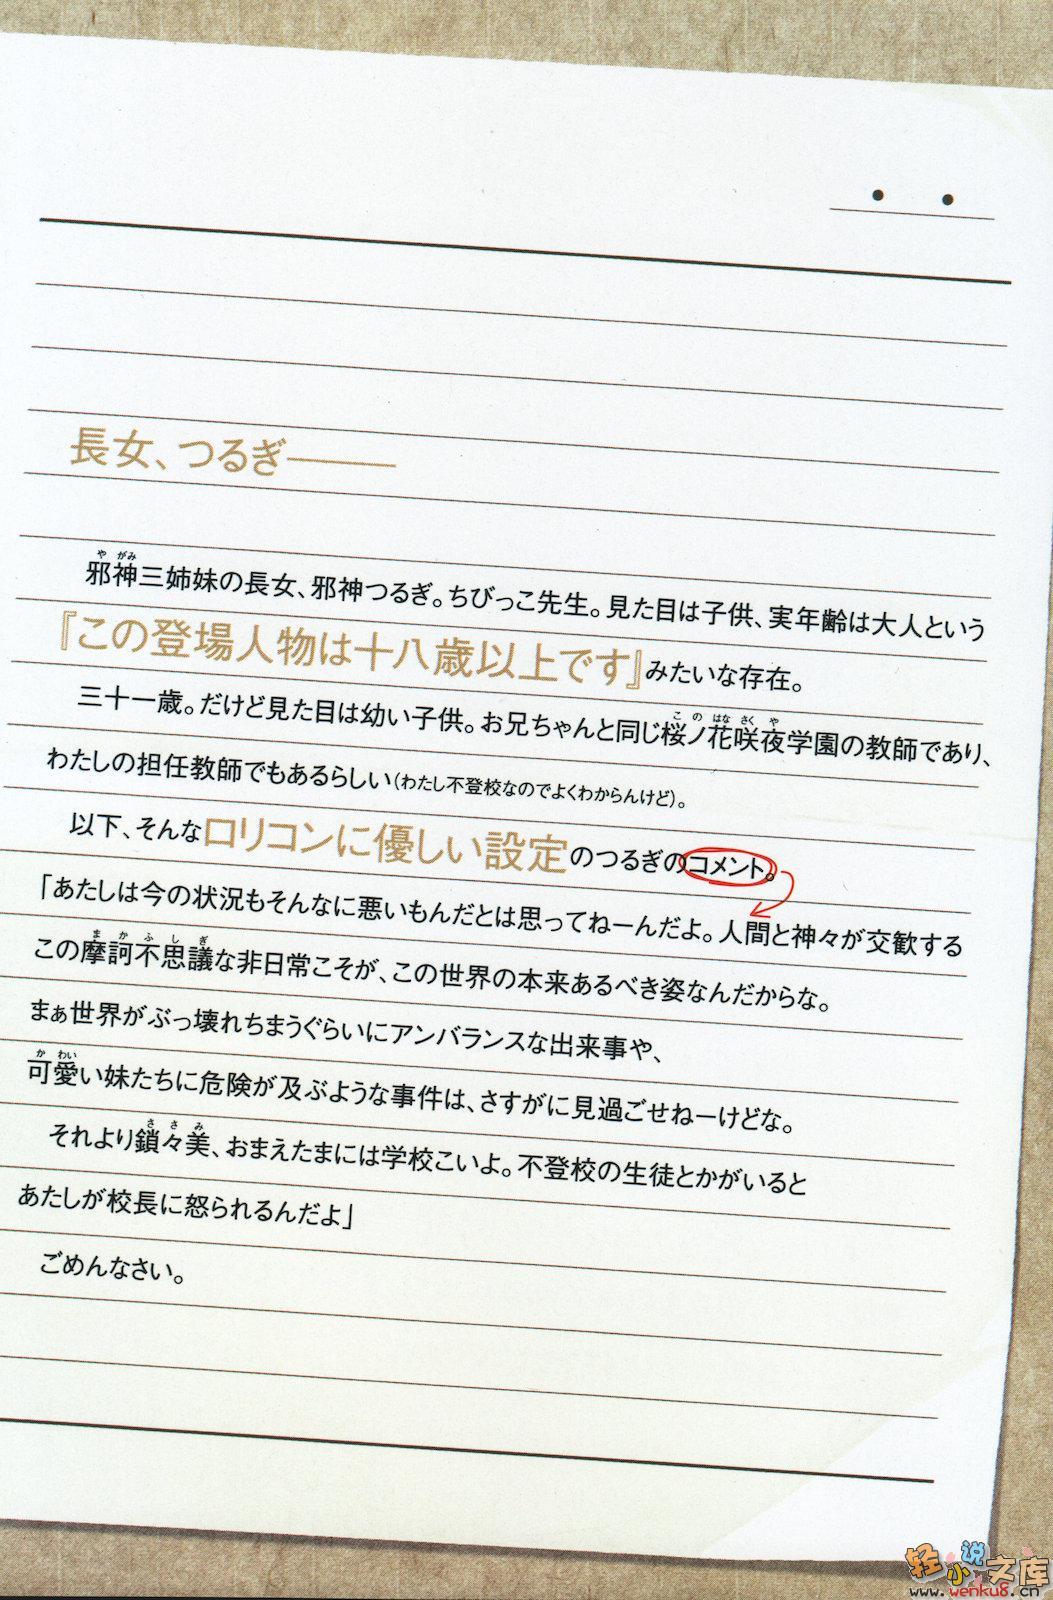 長女、つるぎ―――
邪神三姉妹の長女、邪神つるぎ。ちびっこ先生。見た目は子供、実年齢は大人という
『この登場人物は十八歳以上です』みたいな存在。
三十一歳。だけど見た目は幼い子供。お兄ちゃんと同じ桜ノ花咲夜学園の教師であり、
わたしの担任教師でもあるらしい(わたし不登校なのでよくわからんけど)。
以下、そんなロリコンに優しい設定のつるぎのコメント。
「あたしは今の状況もそんなに悪いもんだとは思ってねーんだよ。人間と神々が交歓する
この摩訶不思議な非日常こそが、この世界の本来あるべき姿なんだからな。
まぁ世界がぶっ壊れちまうぐらいにアンバランスな出来事や、
可愛い妹たちに危険が及ぶような事件は、さすがに見過ごせねーけどな。
それより鎖々美、おまえたまには学校こいよ。不登校の生徒とかがいると
あたしが校長に怒られるんだよ」
ごめんなさい。
轻小说文库
www.wenku8.cn